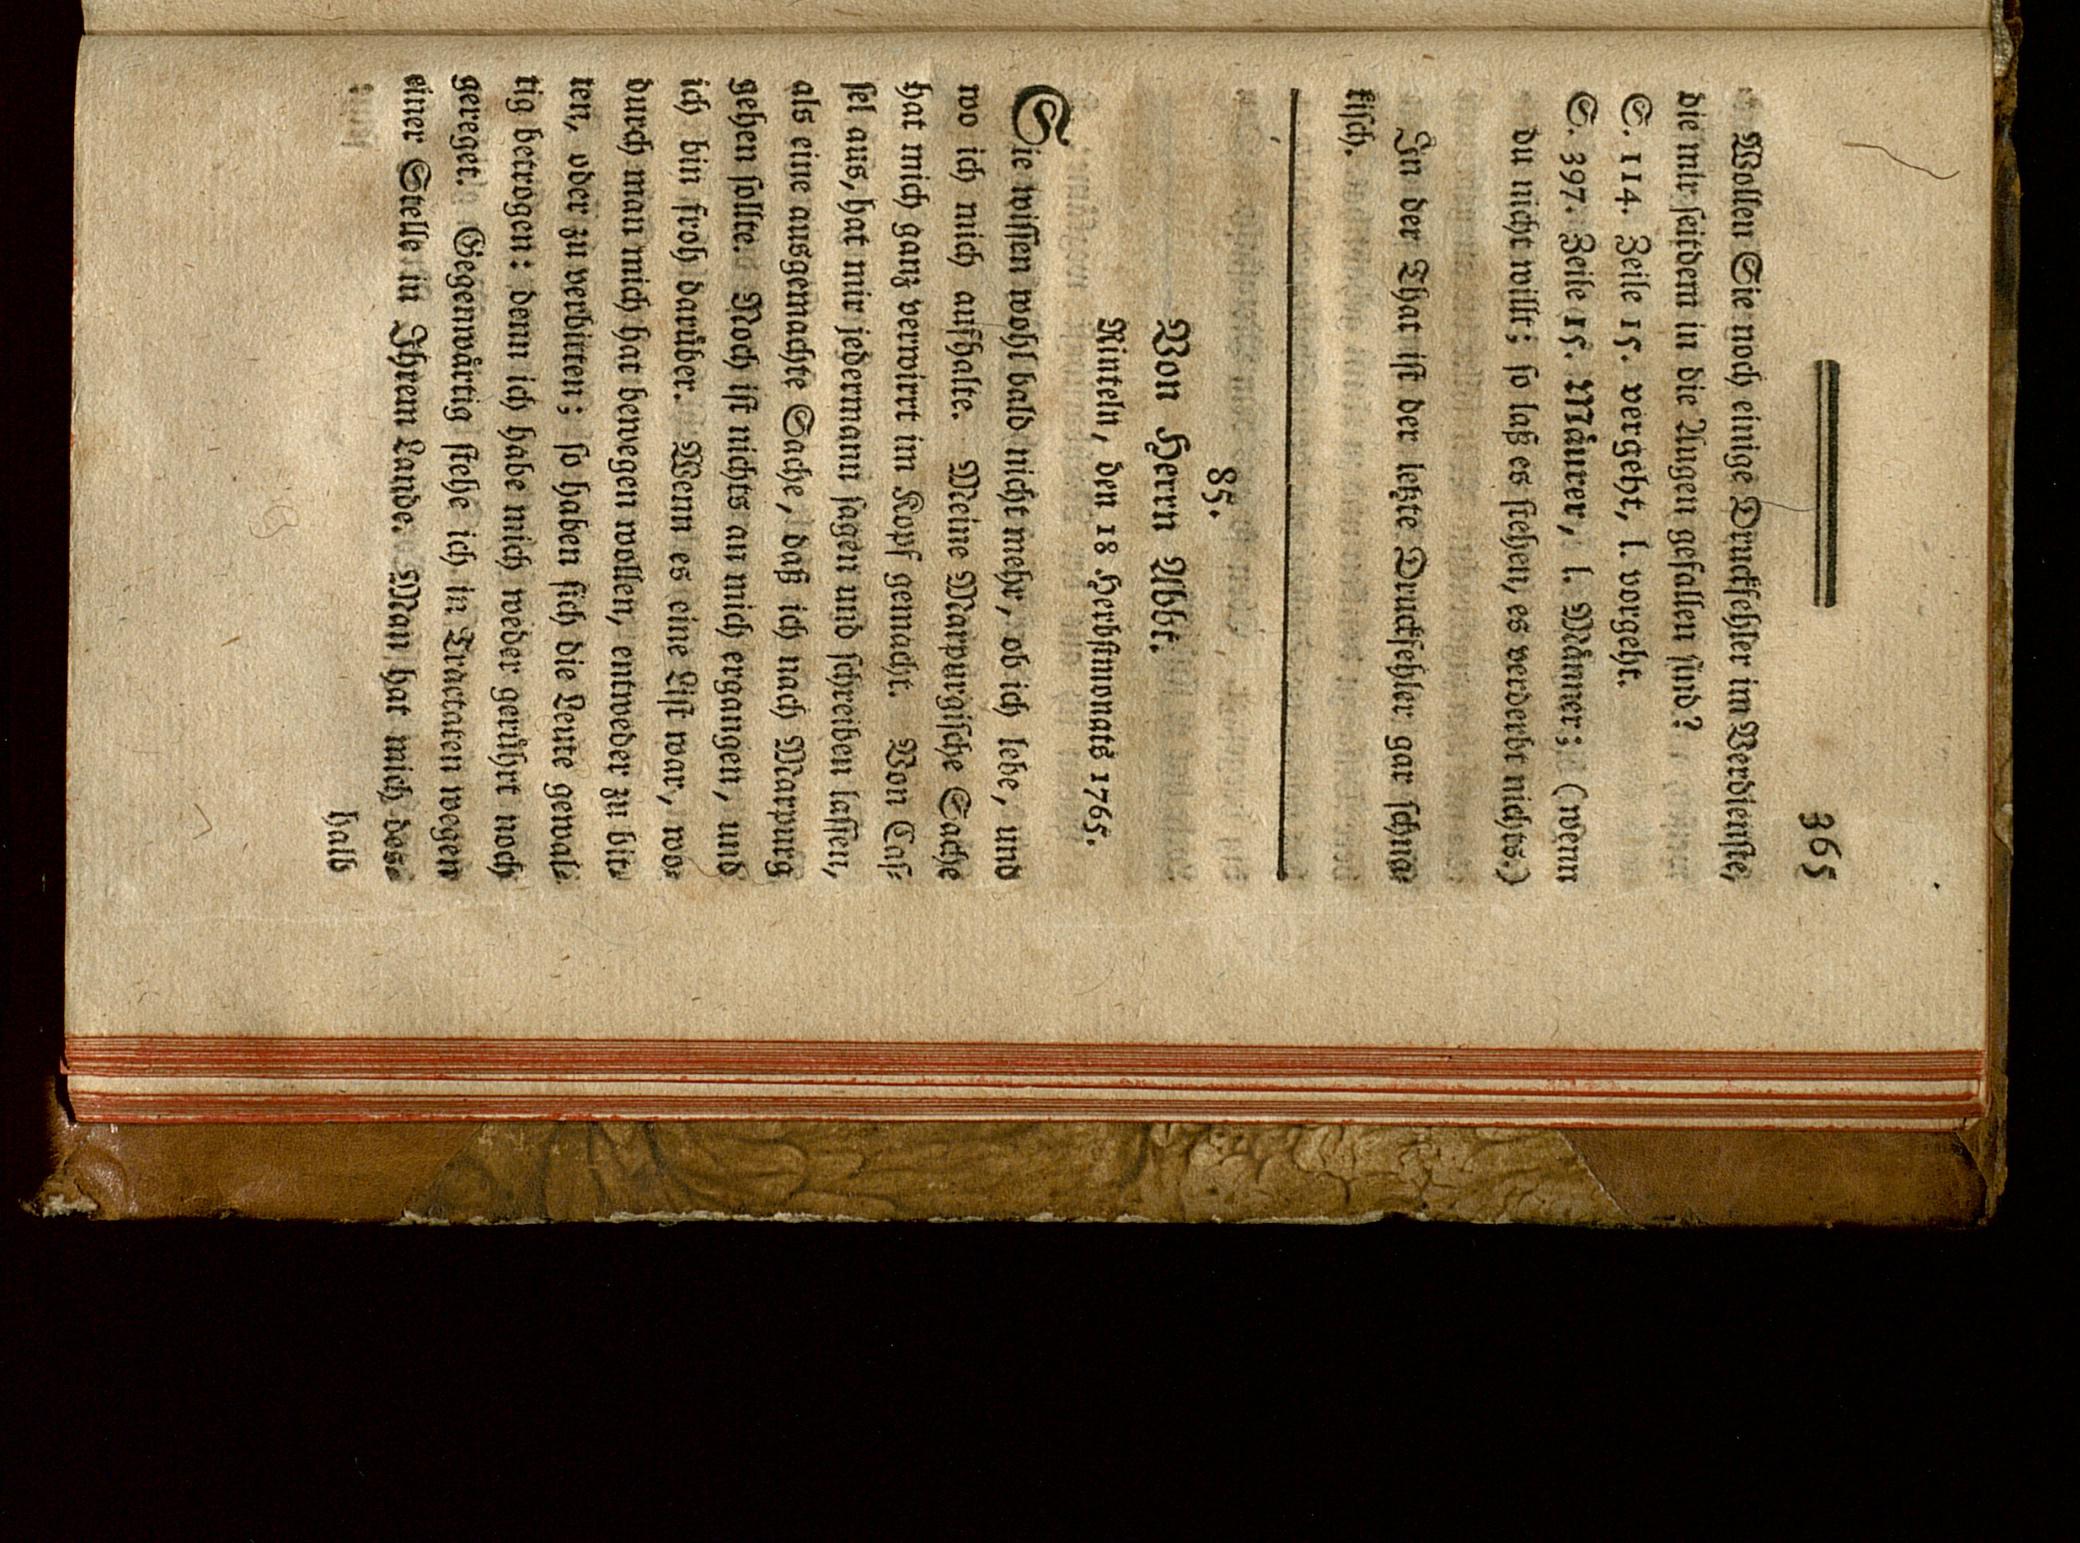 365
Wollen Sie noch einige Druckfehler im Verdienste,
die mir seitdem in die Augen gefallen sind?
S. 114. Zeile 15. vergeht, l. vorgeht.
S. 397. Zeile 15. Mäurer, l. Männer; (wenn
du nicht willt; so laß es stehen, es verderbt nichts.)
In der That ist der letzte Druckfehler gar schna-
kisch.
85.
Von Herrn Abbt.
Rinteln, den 18 Herbstmonats 1765.
Sie wissen wohl bald nicht mehr, ob ich lebe, und
wo ich mich aufhalte. Meine Marpurgische Sache
hat mich ganz verwirrt im Kopf gemacht. Von Cas-
sel aus, hat mir jedermann sagen und schreiben lassen,
als eine ausgemachte Sache, daß ich nach Marpurg
gehen sollte. Noch ist nichts an mich ergangen, und
ich bin froh darüber. Wenn es eine List war, wo-
durch man mich hat bewegen wollen, entweder zu bit-
ten, oder zu verbitten; so haben sich die Leute gewal-
tig betrogen: denn ich habe mich weder gerührt noch
gereget. Gegenwärtig stehe ich in Tractaten wegen
einer Stelle in Ihrem Lande. Man hat mich des-
halb